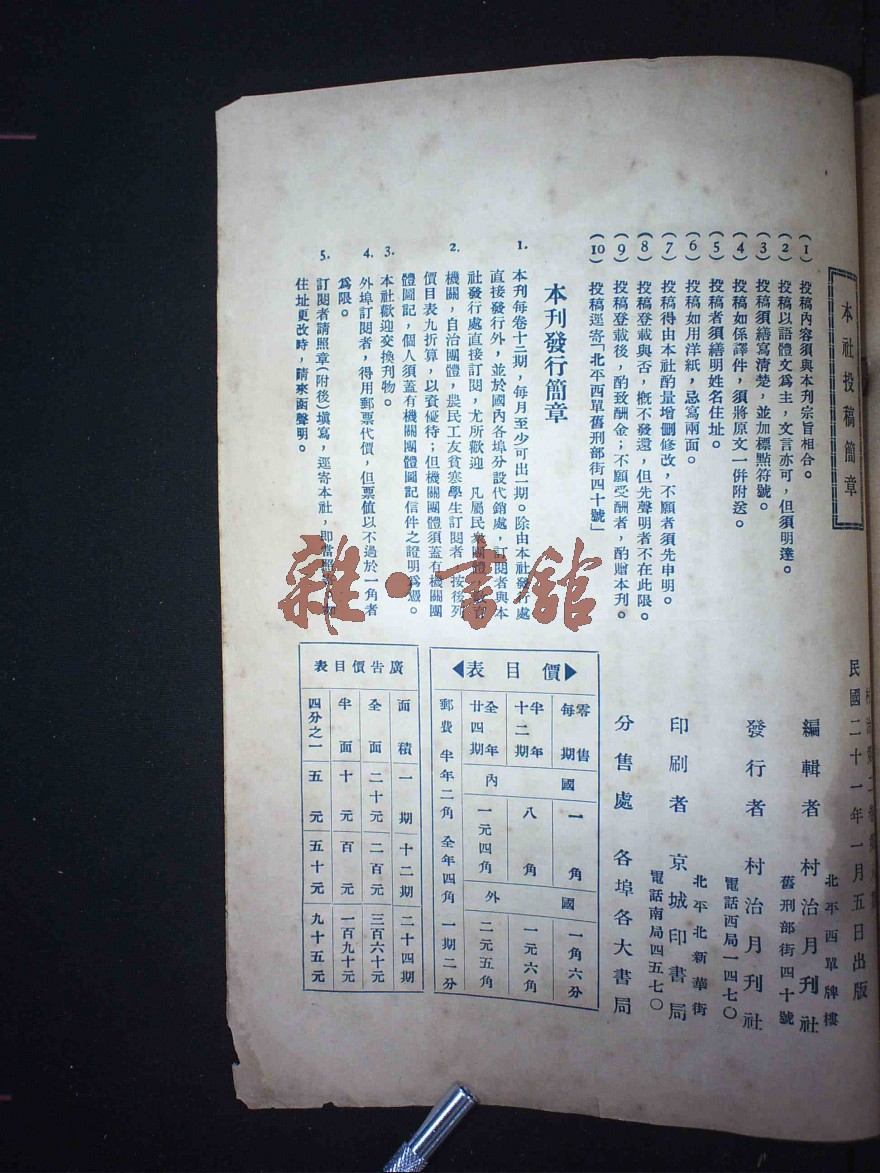 本社投稿簡章
(1) 投稿內容須與本刊宗旨相合。
(2) 投稿以語體文爲主，文言亦可，但須明達。
(3) 投稿須繕寫清楚，並加標點符號。
(4) 投稿如係譯件，須將原文一併附送。
(5) 投稿者須繕明姓名住址。
(6) 投稿如用洋紙，忌寫兩面。
(7) 投稿得由本社酌量增刪修改，不願者須先申明。
(8) 投稿登載與否，概不發還，但先聲明者不在此限。
(9) 投稿登載後，酌致酬金；不願受酬者，酌贈本刊。
(10) 投稿逕寄「北平西單舊刑部街四十號」
本刊發行簡章
1. 本刊每卷十二期，每月至少可出一期。除由本社發行處
直接發行外，並於國內各埠分設代銷處，訂閱者與本
社發行處直接訂閱，尤所歡迎 凡屬民衆團體，教育
2. 機關，自治團體，農民工友貧寒學生訂閱者，按後列
價目表九折算，以資優待；但機關團體須蓋有機關團
體圖記，個人須蓋有機關團體圖記信件之證明爲憑。
3. 本社歡迎交換刊物。
4. 外埠訂閱者，得用郵票代價，但票值以不過於一角者
爲限。
5. 訂閱者請照章(附後)填寫，逕寄本社，即當照
住址更改時，請來函聲明。
民國二十一年一月五日出版
編輯者 村治月刊社
北平西單牌樓
舊刑部街四十號
發行者 村治月刊社
電話西局一四七〇
北平北新華街
印刷者 京城印書局
電話南局四五七〇
分售處 各埠各大書局
▶價目表◀
零售每期 國內 一角 國外 一角六分
半年十二期 八角 一元六角
全年廿四期 一元四角 二元五角
郵費 半年二角 全年四角 一期二分
廣告價目表
面積 一期 十二期 二十四期
全面 二十元 二百元 三百六十元
半面 十元 百元 一百九十元
四分之一 五元 五十元 九十五元
雜·書館